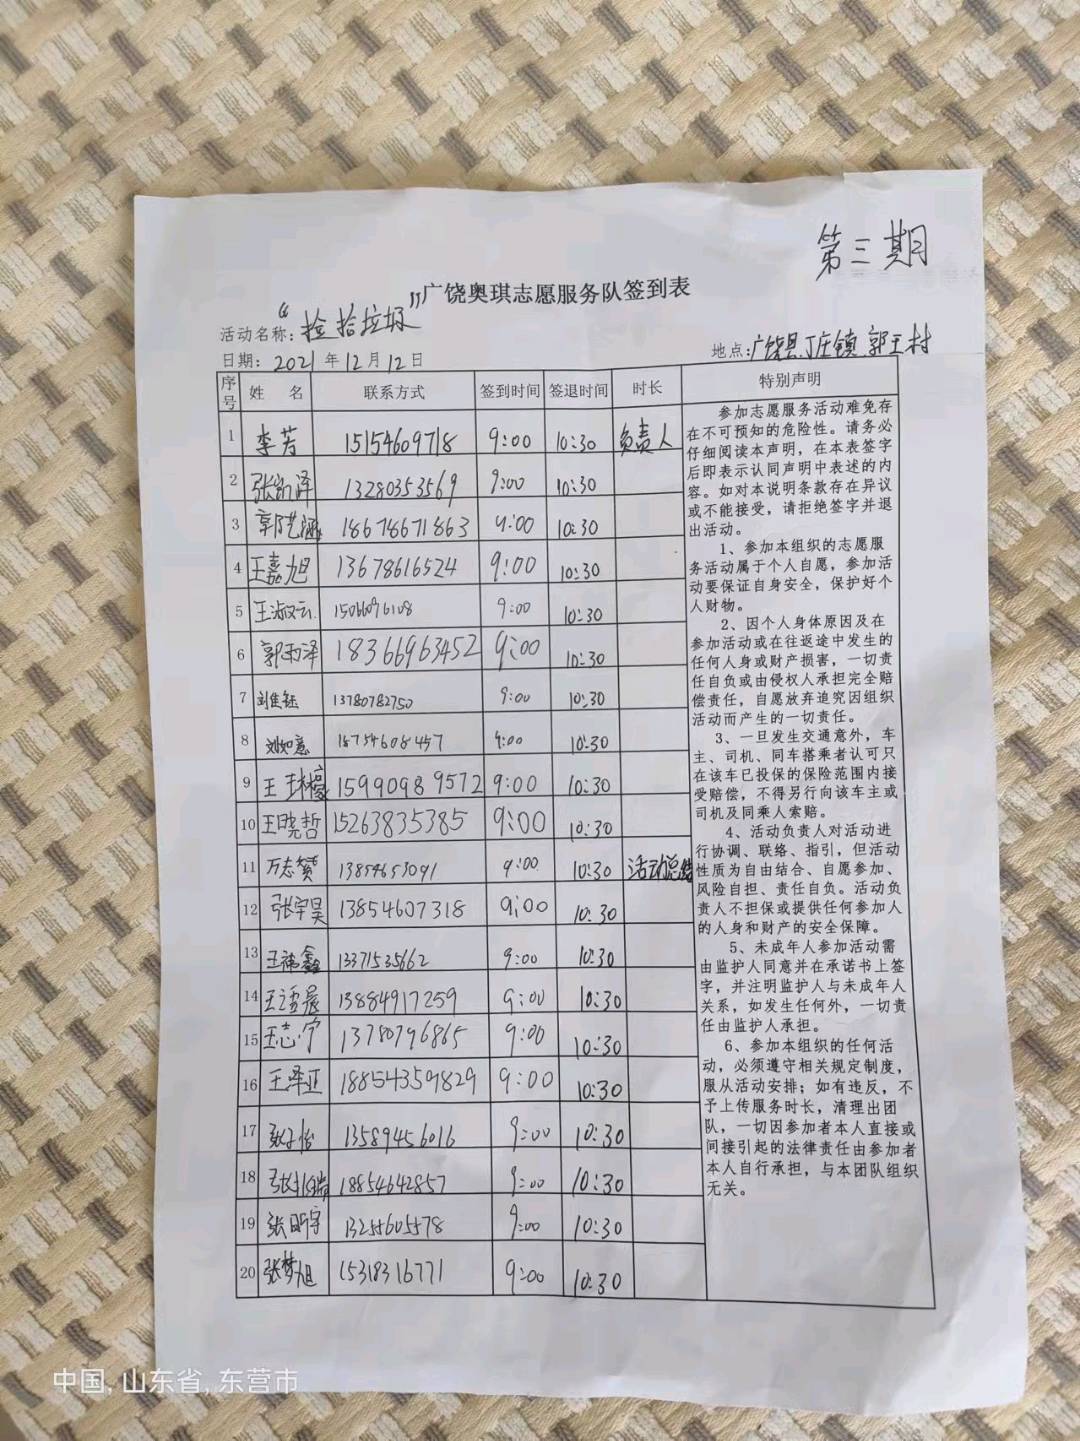 第三期
广饶奥琪志愿服务队签到表
活动名称："捡拾垃圾"
日期：2021年12月12日
地点：广饶县丁庄镇郭王村
序号 姓 名 联系方式 签到时间 签退时间 时长 特别声明
1 李芳 15154609718 9:00 10:30 负责人
2 张凯泽 13280353569 9:00 10:30
3 郭艺涵 18678671863 9:00 10:30
4 王嘉旭 13678616524 9:00 10:30
5 王淑云 15066096108 9:00 10:30
6 郭雨泽 18366963452 9:00 10:30
7 刘佳钰 13780782750 9:00 10:30
8 刘如意 18754608457 9:00 10:30
9 王 15990989572 9:00 10:30
10 王晓哲 15263835385 9:00 10:30
11 万志赞 13854653091 9:00 10:30 活动总结
12 张宇昊 13854607318 9:00 10:30
13 王祎鑫 13371535662 9:00 10:30
14 13884917259 9:00 10:30
15 王志宁 13780796865 9:00 10:30
16 王泽正 18854359829 9:00 10:30
17 张子怡 13589456016 9:00 10:30
18 18854642857 9:00 10:30
19 张昕宇 13255605578 9:00 10:30
20 张梦旭 15318316771 9:00 10:30
参加志愿服务活动难免存
在不可预知的危险性。请务必
仔细阅读本声明，在本表签字
后即表示认同声明中表述的内
容。如对本说明条款存在异议
或不能接受，请拒绝签字并退
出活动。
1、参加本组织的志愿服
务活动属于个人自愿，参加活
动要保证自身安全，保护好个
人财物。
2、因个人身体原因及在
参加活动或在往返途中发生的
任何人身或财产损害，一切责
任自负或由侵权人承担完全赔
偿责任，自愿放弃追究因组织
活动而产生的一切责任。
3、一旦发生交通意外，车
主、司机、同车搭乘者认可只
在该车已投保的保险范围内接
受赔偿，不得另行向该车主或
司机及同乘人索赔。
4、活动负责人对活动进
行协调、联络、指引，但活动
性质为自由结合、自愿参加、
风险自担、责任自负。活动负
责人不担保或提供任何参加人
的人身和财产的安全保障。
5、未成年人参加活动需
由监护人同意并在承诺书上签
字，并注明监护人与未成年人
关系，如发生任何外，一切责
任由监护人承担。
6、参加本组织的任何活
动，必须遵守相关规定制度，
服从活动安排；如有违反，不
予上传服务时长，清理出团
队，一切因参加者本人直接或
间接引起的法律责任由参加者
本人自行承担，与本团队组织
无关。
中国，山东省，东营市